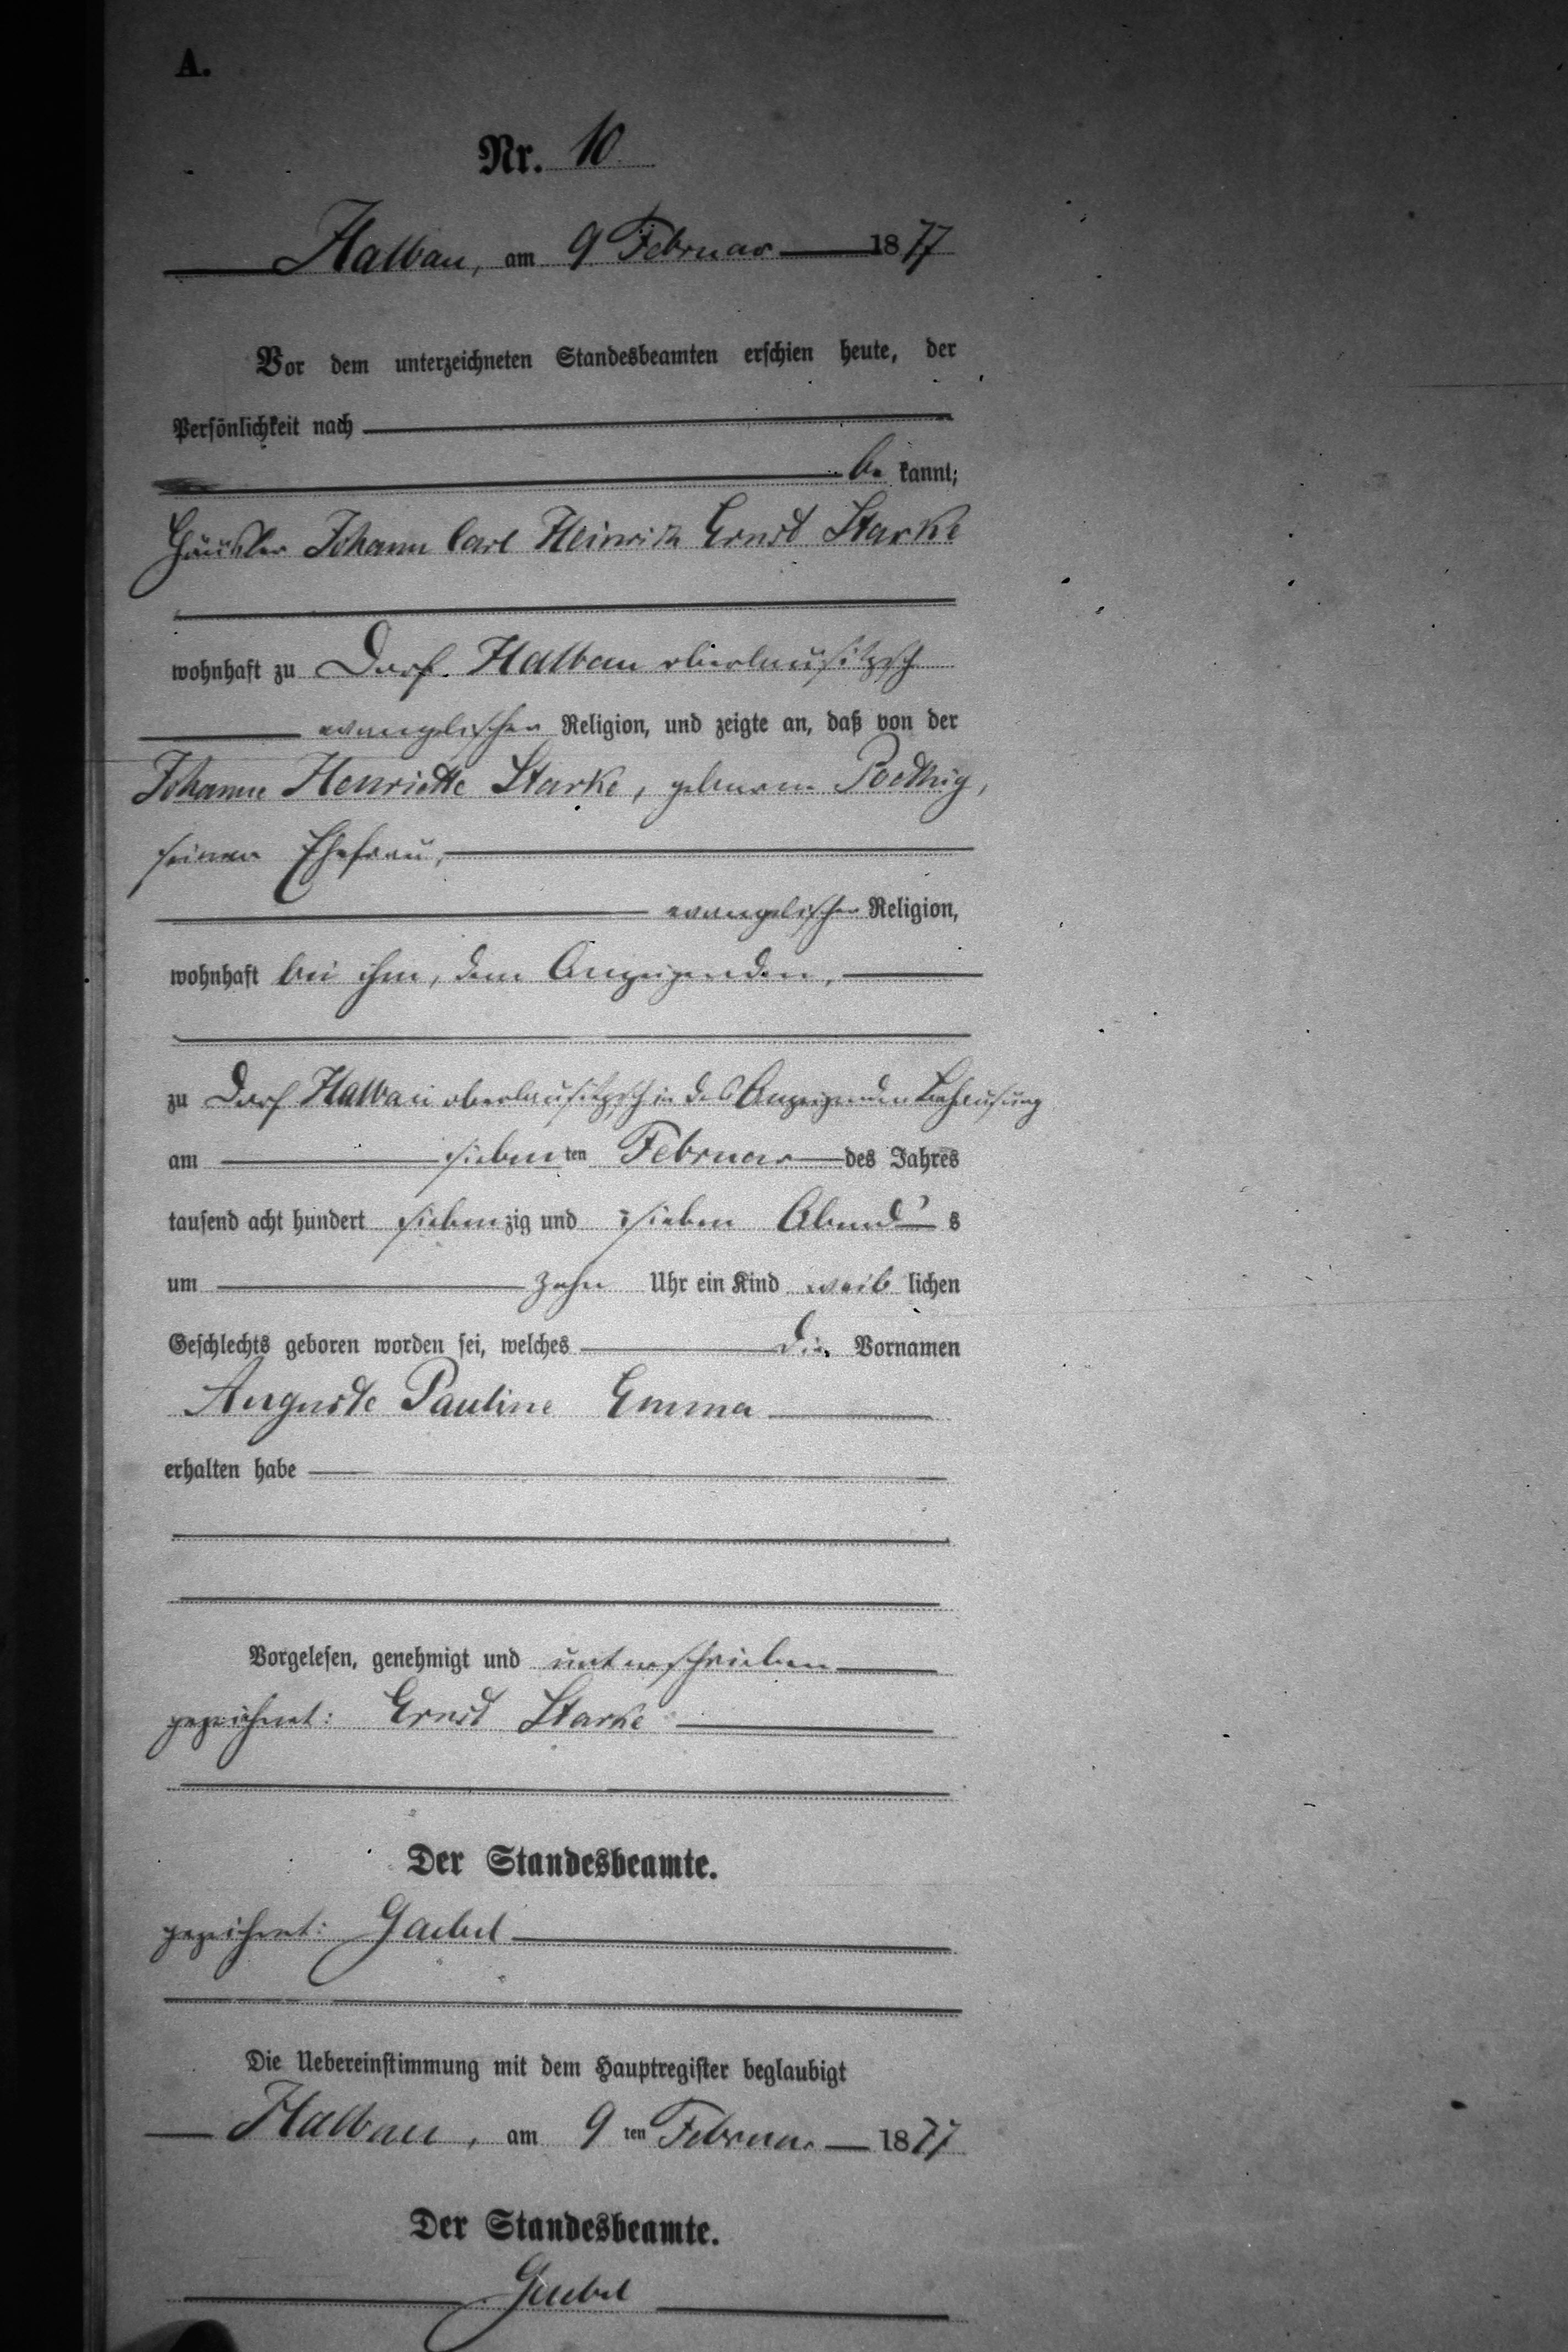 A.
Nr. 10.
Halbau, am 9 Februar 1877
Vor dem unterzeichneten Standesbeamten erschien heute, der
Persönlichkeit nach
be kannt;
Häusler Johann Carl Heinrich Ernst Starke
wohnhaft zu Dorf Halbau oberlausitzsch
evangelischer Religion, und zeigte an, daß von der
Johanne Henriette Starke, geborene Poethig,
seiner Ehefrau,
evangelischer Religion,
wohnhaft bei ihm, dem Anzeigenden,
zu Dorf Halbau oberlausitzsch in des Anzeigenden Behausung
am siebenten Februar des Jahres
tausend acht hundert siebenzig und sieben Abend s
um zehn Uhr ein Kind weib lichen
Geschlechts geboren worden sei, welches die Vornamen
Auguste Pauline Emma
erhalten habe
Vorgelesen, genehmigt und unterschrieben
gezeichnet: Ernst Starke
Der Standesbeamte.
gezeichnet: Gaebel
Die Uebereinstimmung mit dem Hauptregister beglaubigt
Halbau, am 9 ten Februar 1877
Der Standesbeamte.
Gaebel